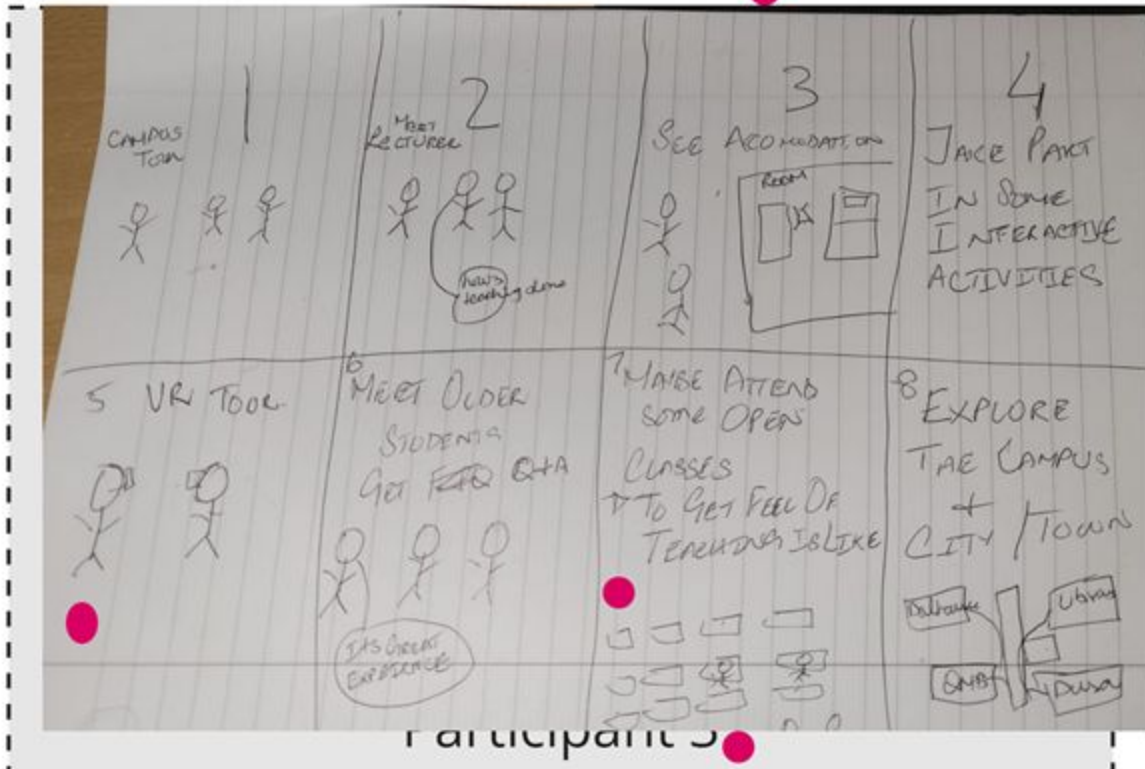 1
CAMPUS
TOUR
2
MEET
LECTURER
how's
teaching done
3
SEE ACOMODATION
ROOM
4
TAKE PART
IN SOME
INTERACTIVE
ACTIVITIES
5 VR TOUR
6
MEET OLDER
STUDENTS
GET Q+A
ITS GREAT
EXPERIENCE
7 MAYBE ATTEND
SOME OPEN
CLASSES
TO GET FEEL OF
TEACHING IS LIKE
8
EXPLORE
THE CAMPUS
+
CITY / TOWN
Dalhousie
Library
QMB
Dusa
Participant 3